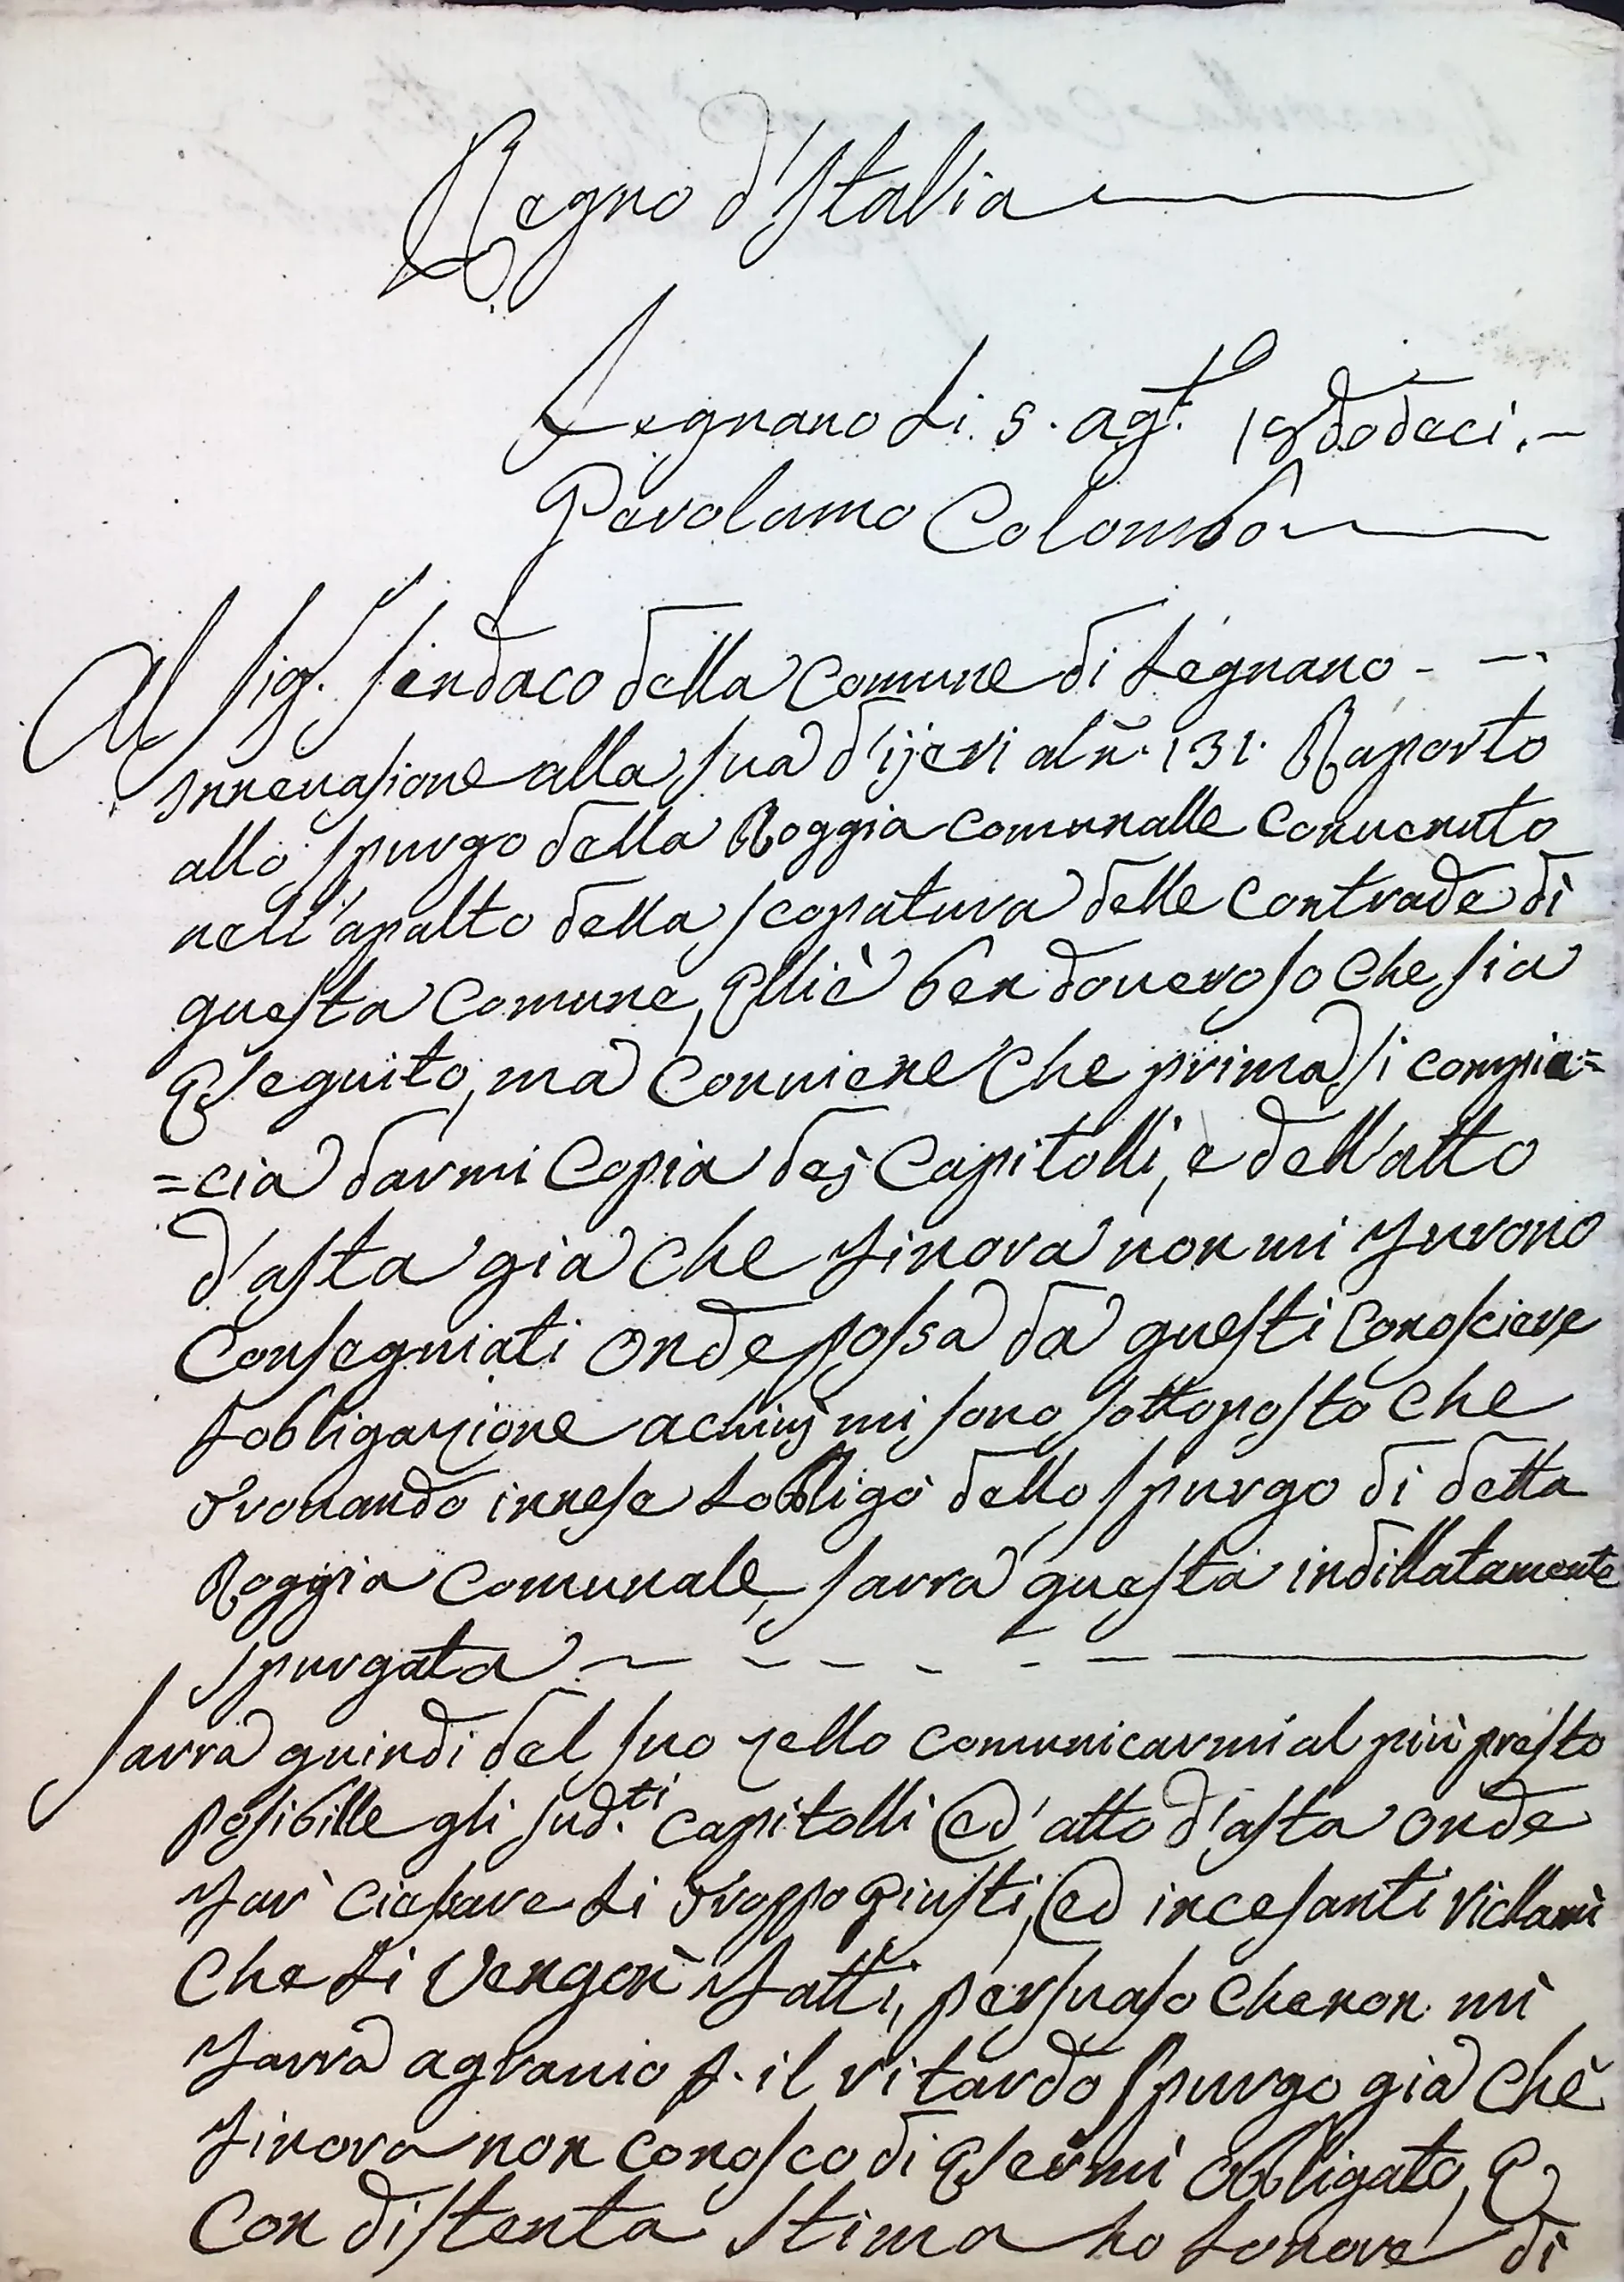 Regno d'Italia
Legnano Li. 5. agt.o 18dodeci.
Gerolamo Colombo
Al Sig.r Sindaco della Comune di Legnano
Inrevasione alla sua d'ijeri al n. 131. Raporto
allo spurgo della Roggia comunalle convenuto
nell'apalto della scopatura delle Contrade di
questa Comune, Elliè ben doveroso che sia
Eseguito, ma Conviene che prima si compia=
=cia darmi Copia dej Capitolli, e dell'atto
d'asta già che Finora non mi Furono
Consegniati onde possa da questi Conosciere
Lobligazione achuij mi sono sottoposto che
trovando innese Lobligo dello spurgo di detta
Roggia Comunale, sarra questa indillatamente
spurgata
Sarra quindi del suo zello comunicarmi al più presto
posibille gli sud.ti capitolli ed' atto d'asta onde
Far Ciesare Li troppo Giusti, ed incesanti richiami
Che Li Vengon Fatti, persuaso che non mi
Farra agravio p. il ritardo spurgo già che
Finora non conosco di Esermi obbligato, E
Con distenta stima ho Lonore di